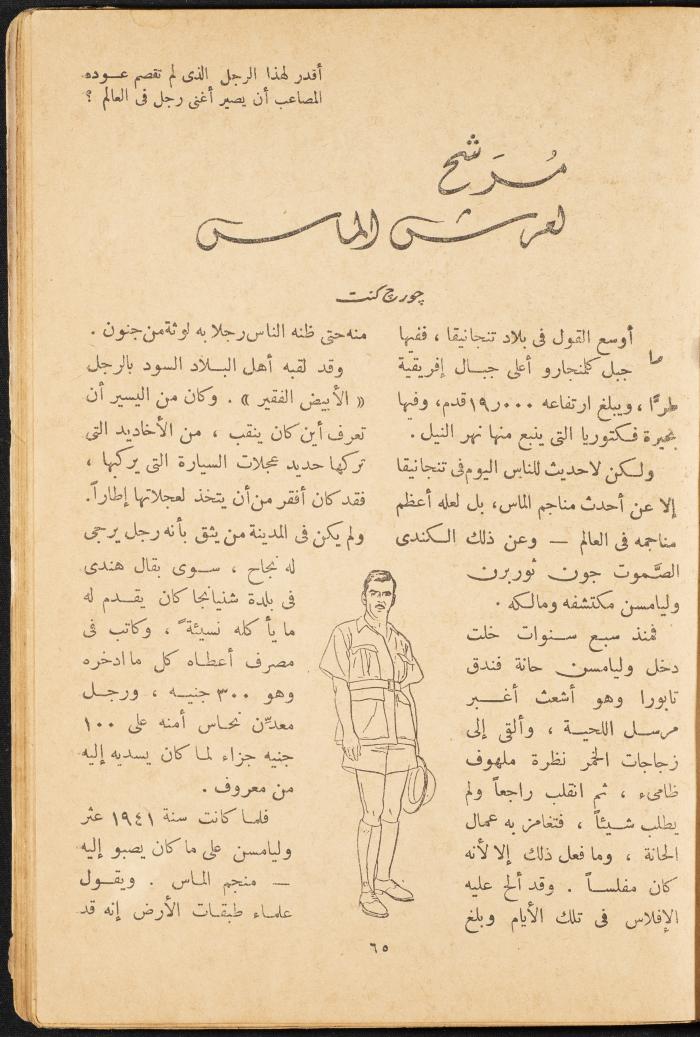 أقدر لهذا الرجل الذى لم تقصم عـوده
المصاعب أن يصير أغنى رجل فى العالم ؟
مُرَشح
لعرش الماس
چورچ كنت
أوسع القول فى بلاد تنجانيقا ، ففيها
ما جبل كلنجارو أعلى جبال إفريقية
طرًّا ، ويبلغ ارتفاعه ١٩٫٠٠٠ قدم، وفيها
بحيرة فكتوريا التى ينبع منها نهر النيل .
ولكن لاحديث للناس اليوم فى تنجانيقا
إلا عن أحدث مناجم الماس، بل لعله أعظم
مناجمه فى العالم — وعن ذلك الكندى
الصَّموت جون ثوربرن
وليامسن مكتشفه ومالكه .
فمنذ سبع سنوات خلت
دخل وليامسن حانة فندق
تابورا وهو أشعث أغبر
مرسل اللحية ، وألقى إلى
زجاجات الخمر نظرة ملهوف
ظامىء ، ثم انقلب راجعاً ولم
يطلب شيئاً ، فتغامز به عمال
الحانة ، وما فعل ذلك إلا لأنه
كان مفلساً . وقد ألح عليه
الإفلاس فى تلك الأيام وبلغ
منه حتى ظنه الناس رجلا به لوثة من جنون .
وقد لقبه أهل البلاد السود بالرجل
« الأبيض الفقير » . وكان من اليسير أن
تعرف أين كان ينقب ، من الأخاديد التى
تركها حديد عجلات السيارة التى يركبها ،
فقد كان أفقر من أن يتخذ لعجلاتها إطاراً.
ولم يكن فى المدينة من يثق بأنه رجل يرجى
له نجاح ، سوى بقال هندى
فى بلدة شنيانجا كان يقدم له
ما يأكله نسيئةً ، وكاتب فى
مصرف أعطاه كل ما ادخره
وهو ٣٠٠ جنيه ، ورجل
معدِّن نحاس أمنه على ١٠٠
جنيه جزاء لما كان يسديه إليه
من معروف .
فلما كانت سنة ١٩٤١ عثر
وليامسن على ما كان يصبو إليه
— منجم الماس . ويقول
علماء طبقات الأرض إنه قد
٦٥